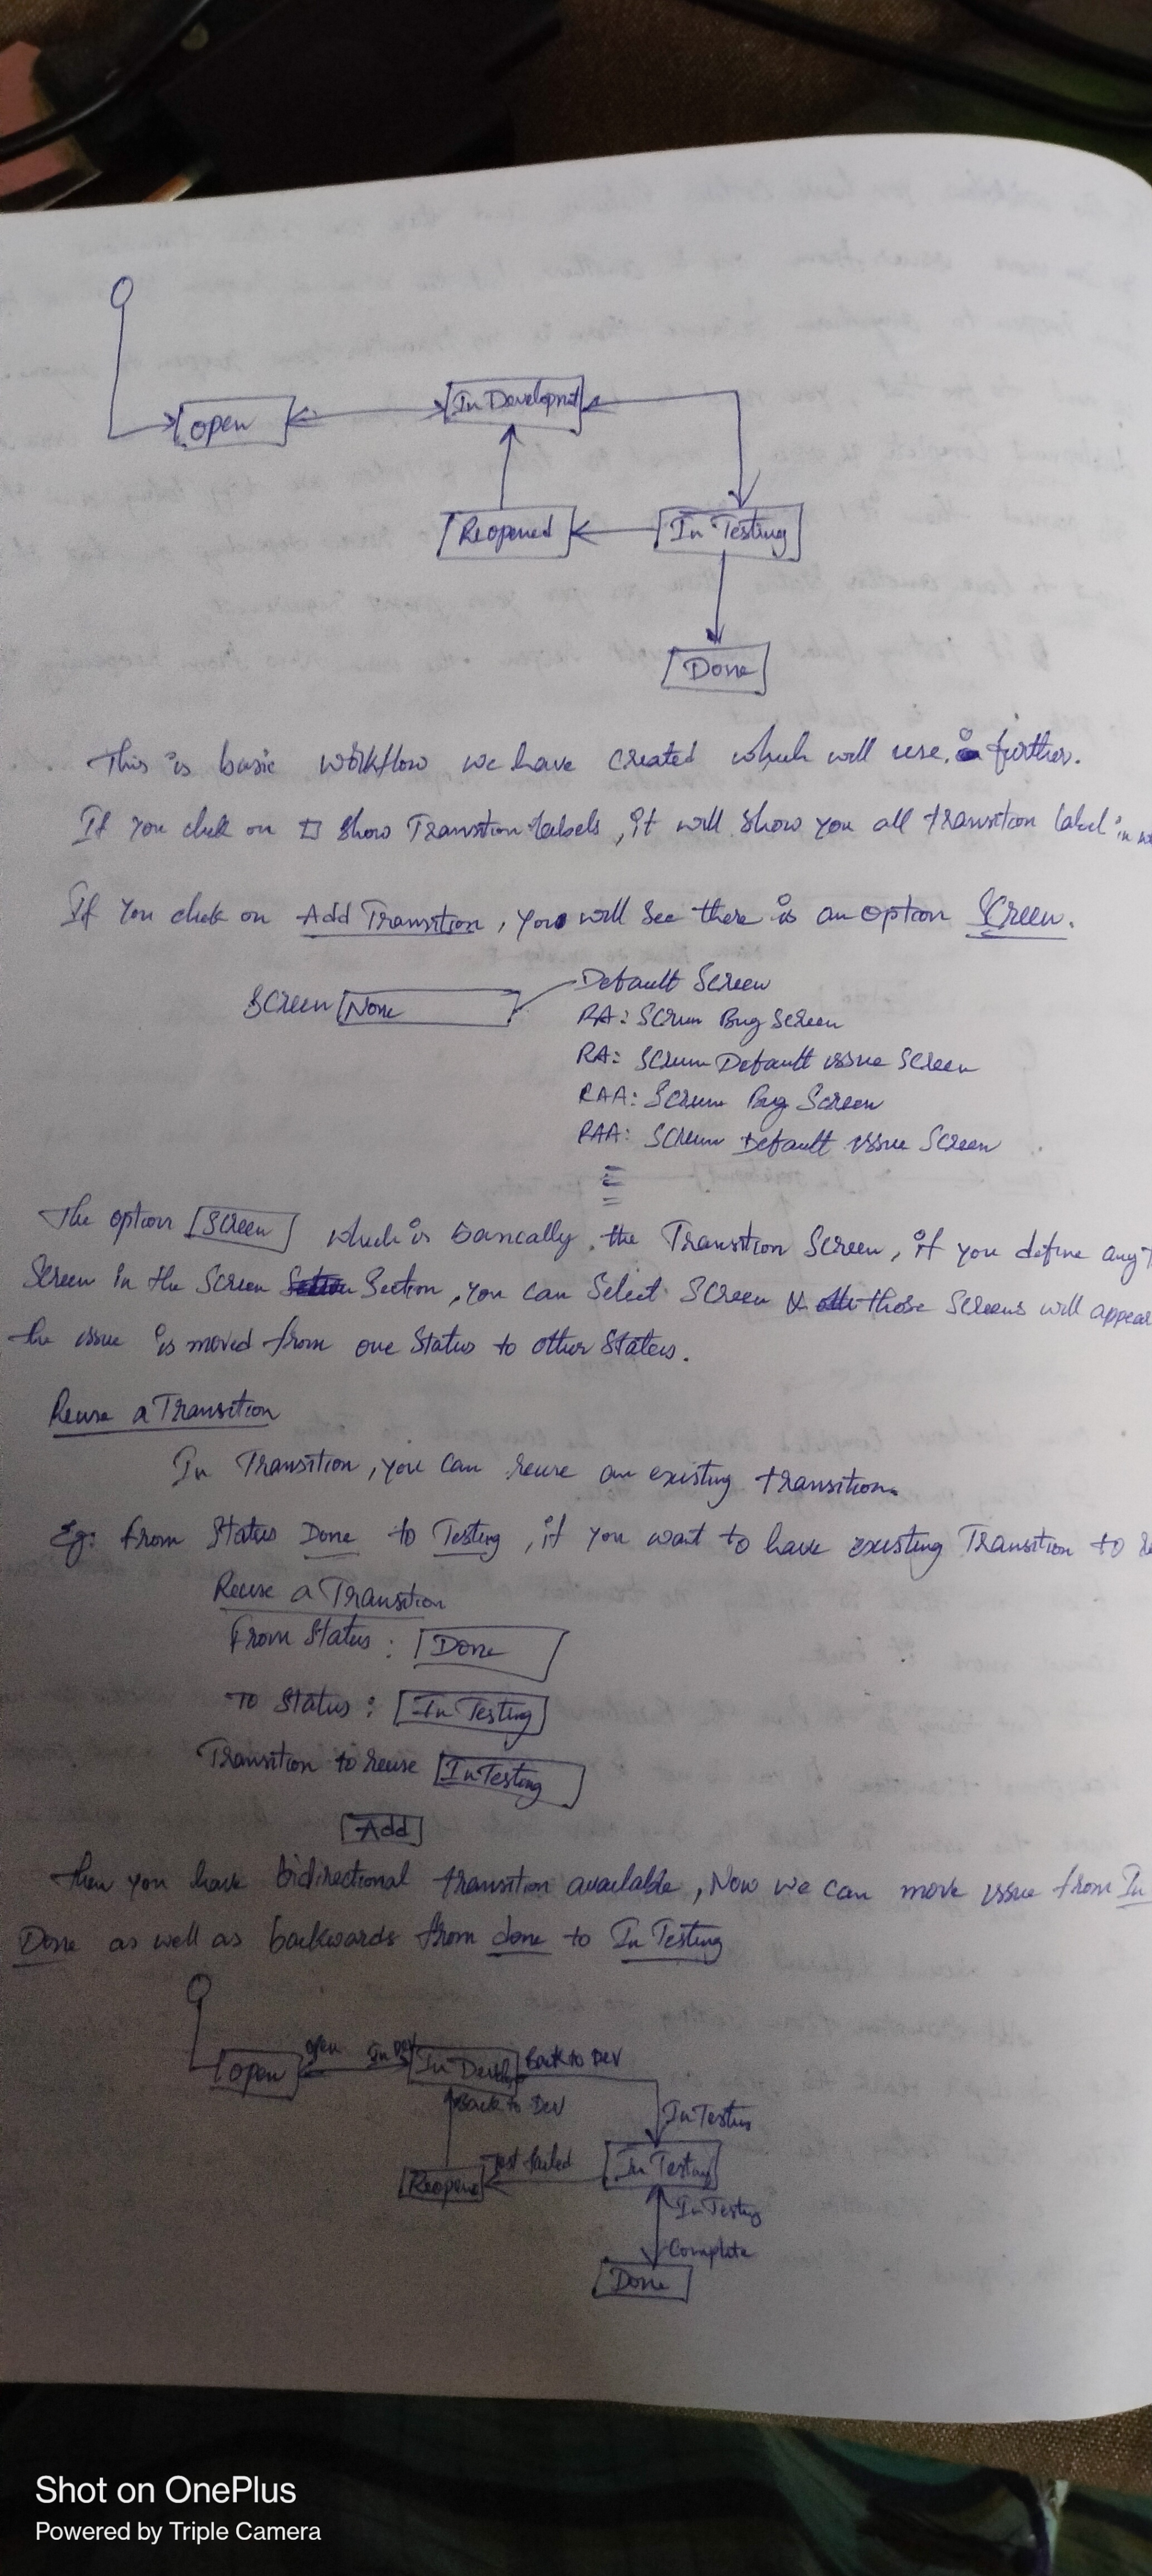 open
In Developmt
Reopened
In Testing
Done
This is basic workflow we have created which will use. further.
If you click on Show Transition labels, it will show you all transition label in
If you click on Add Transition, you will see there is an option Screen.
Screen None
Default Screen
RA: Scrum Bug Screen
RA: Scrum Default issue Screen
RAA: Scrum Bug Screen
RAA: Scrum Default issue Screen
The option Screen which is basically the Transition Screen, if you define any
Screen in the Screen Section, you can Select Screen & those Screens will appear
the issue is moved from one Status to other Status.
Reuse a Transition
In Transition, you can reuse an existing transition.
Eg: from Status Done to Testing, if you want to have existing Transition to
Reuse a Transition
From Status: Done
To Status: In Testing
Transition to reuse In Testing
Add
then you have bidirectional transition available, Now we can move issue from In
Done as well as backwards from done to In Testing
open open In Dev In Develo Back to Dev
Back to Dev In Testing
Reopene Test failed In Testing
In Testing
Complete
Done
Shot on OnePlus
Powered by Triple Camera